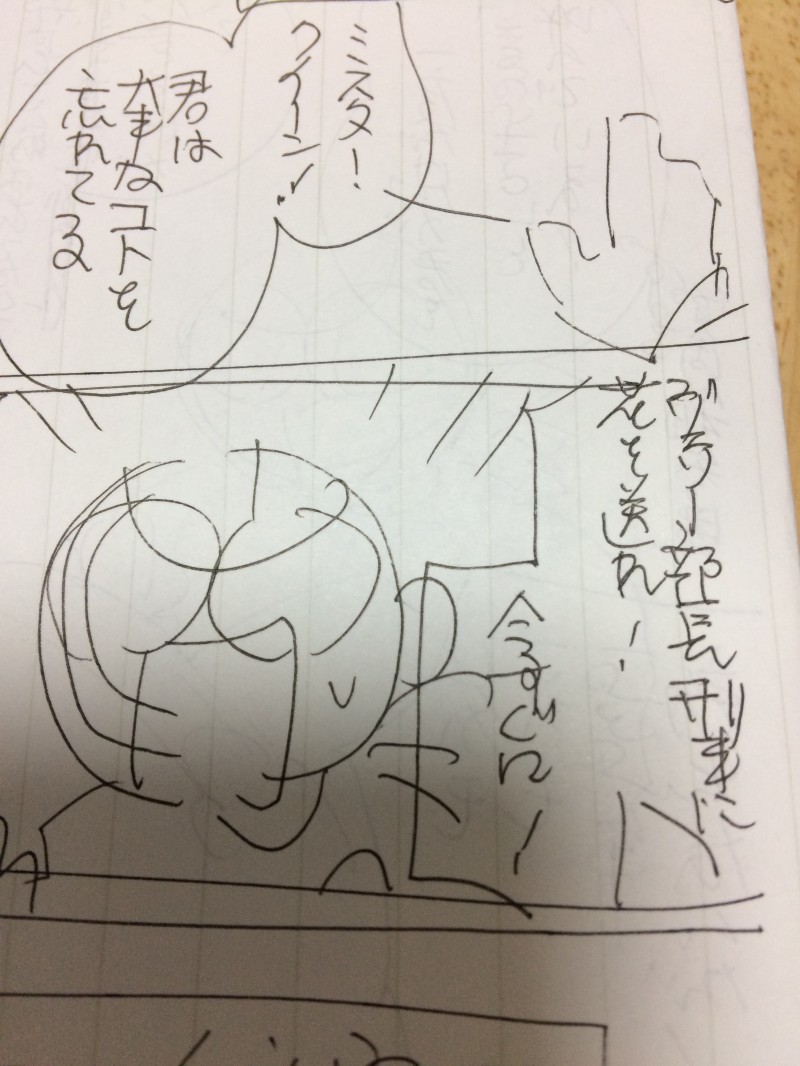 ミスター！
クイーン！
君は
大事なコトを
忘れてる
ヴェリー部長刑事に
花を送れ！
今すぐに！